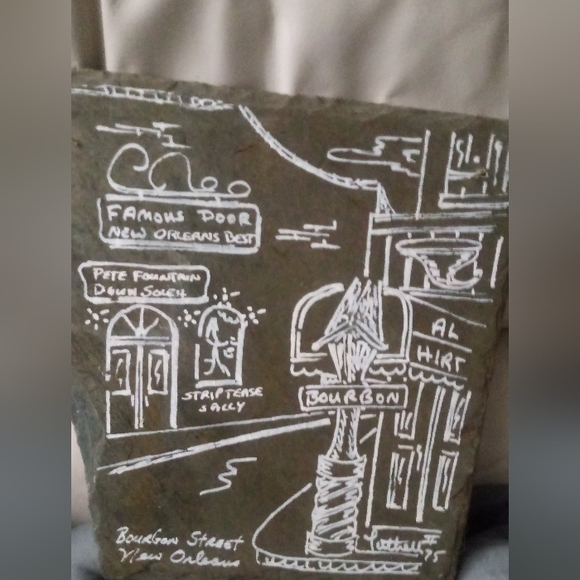 FAMOUS DOOR
NEW ORLEANS BEST
PETE FOUNTAIN
DOWN
STRIPTEASE
SALLY
BOURBON
AL
HIRT
BOURBON STREET
NEW ORLEANS
75